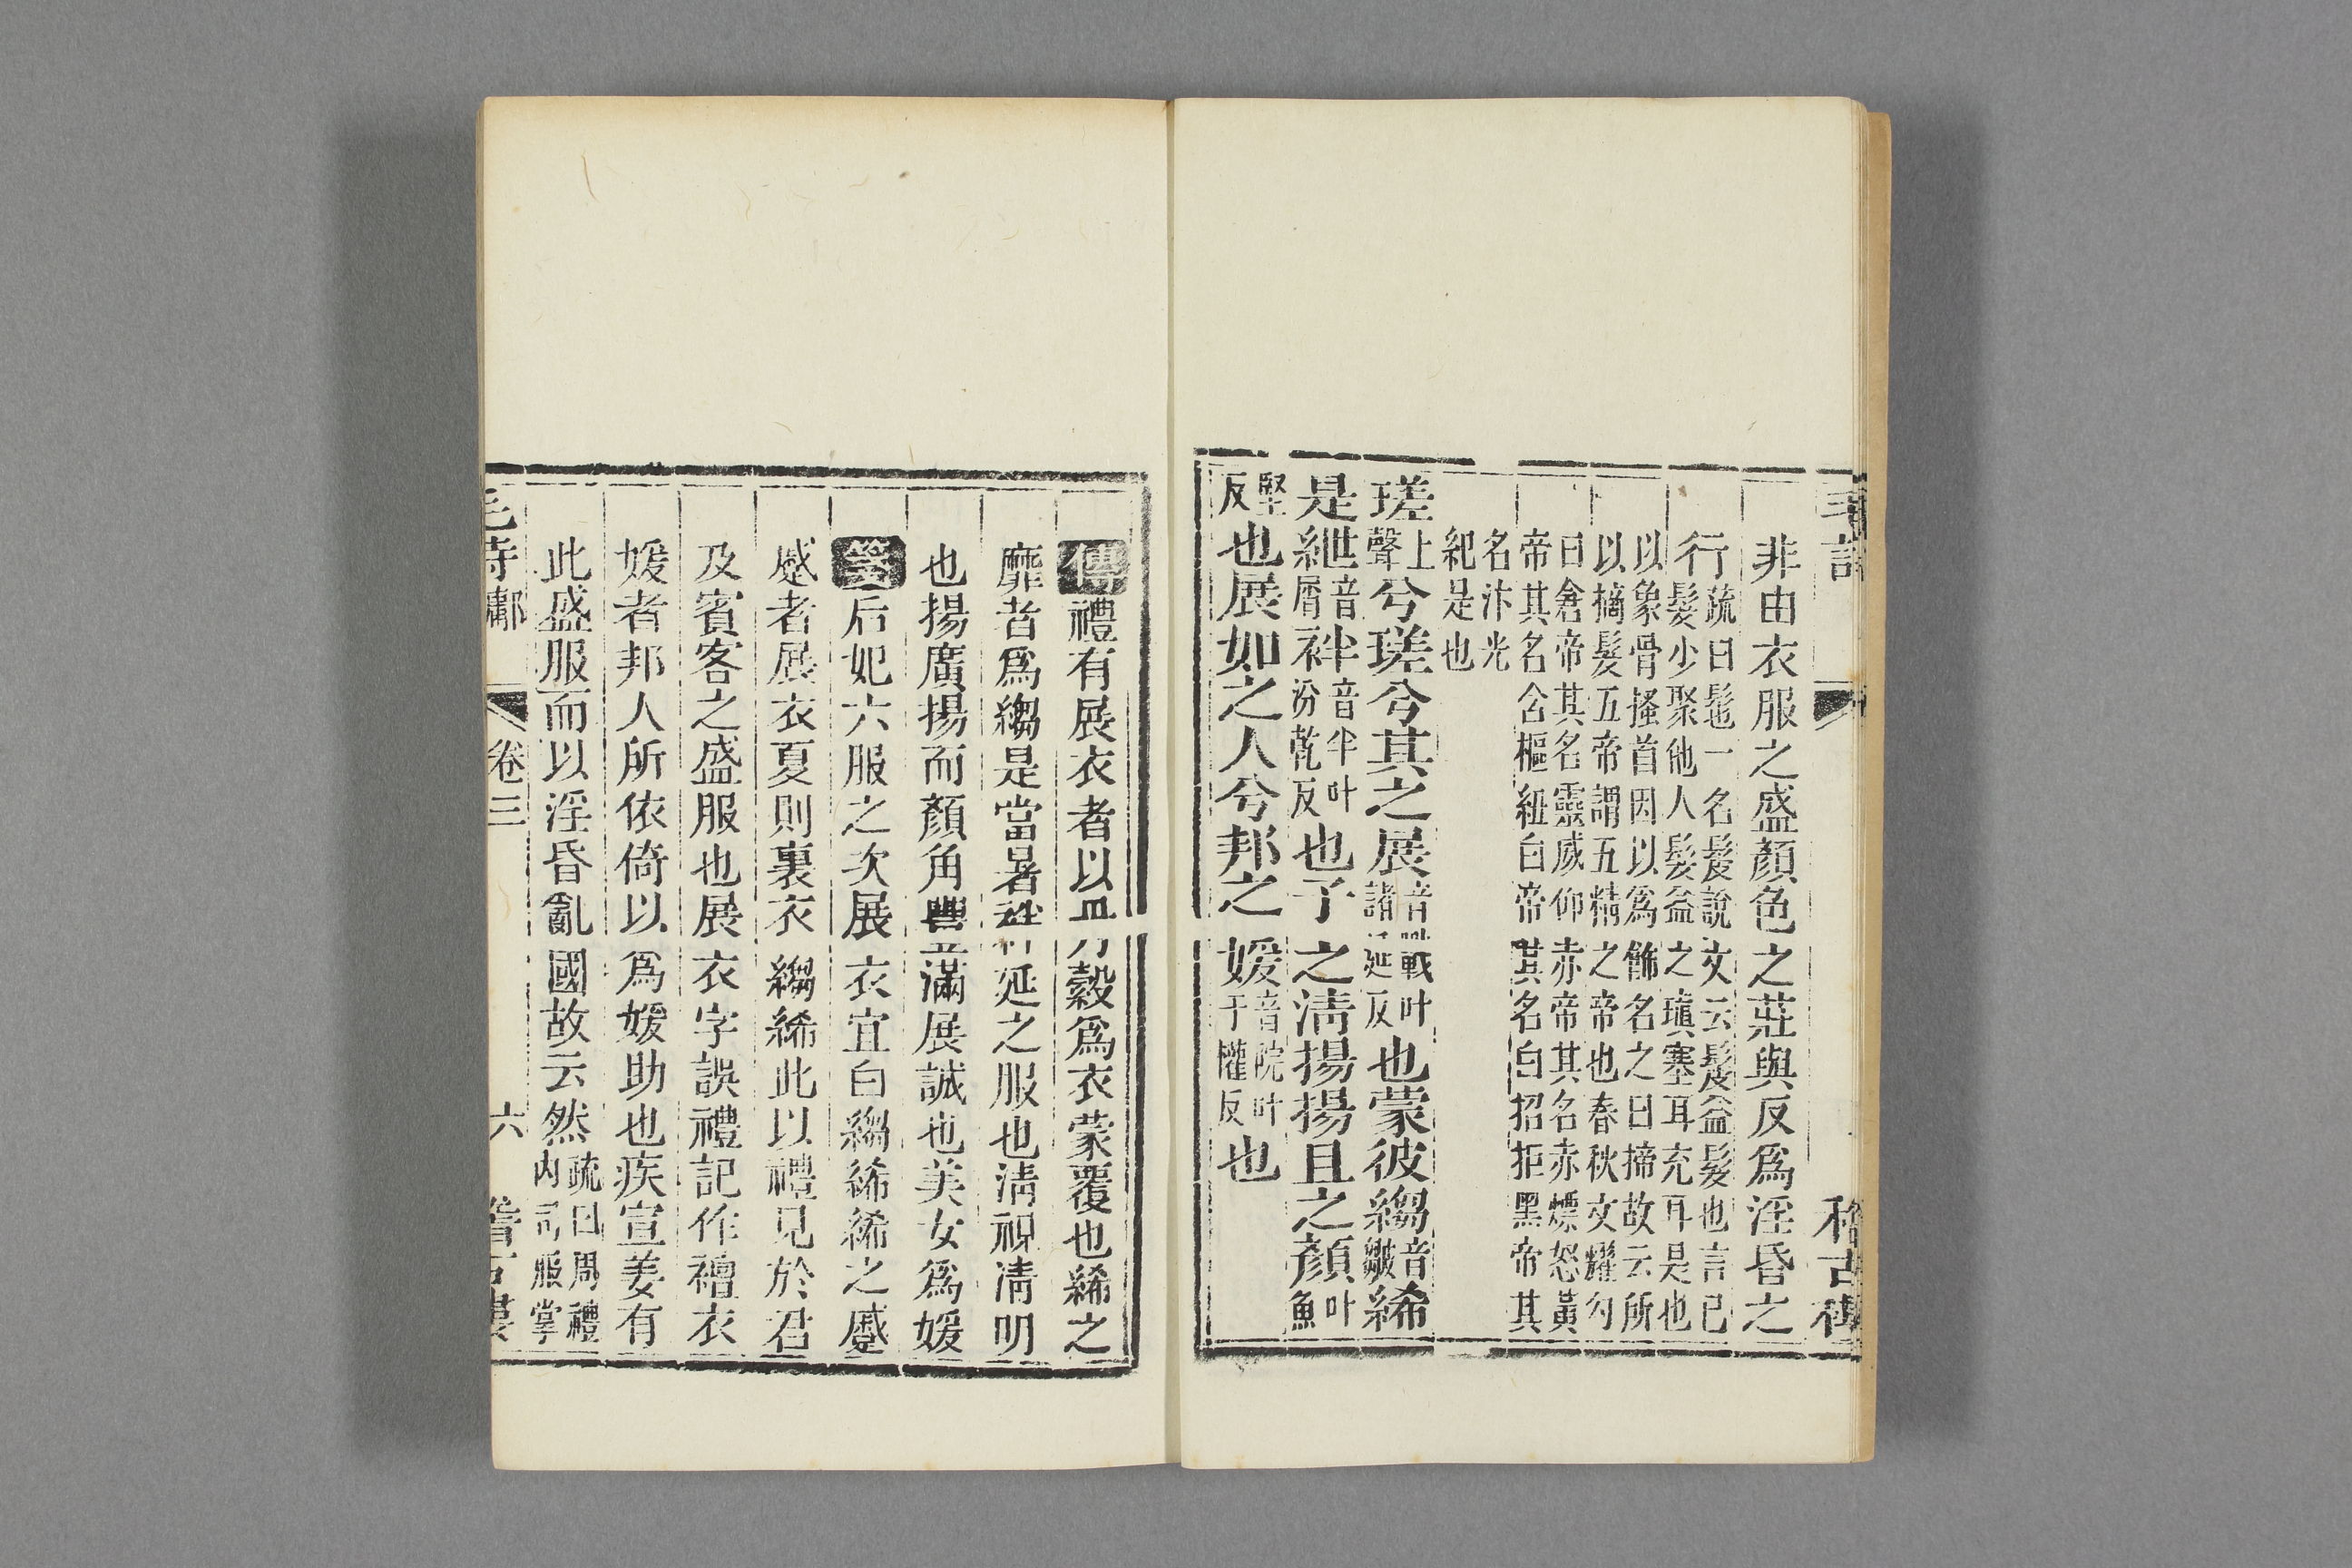 毛詩
稽古樓
非由衣服之盛顏色之莊與反爲淫昏之
行疏曰髢一名髲說文云髲益髮也言己
髮少聚他人髮益之瑱塞耳充耳是也
以象骨搔首因以爲飾名之曰揥故云所
以摘髮五帝謂五精之帝也春秋文耀勾
曰倉帝其名靈威仰赤帝其名赤熛怒黃
帝其名含樞紐白帝其名白招拒黑帝其
名汴光
紀是也
瑳上聲兮瑳兮其之展音戰叶諸延反也蒙彼縐音皺絺
是紲音屑袢音半叶汾乾反也子之清揚揚且之顏叶魚
堅反也展如之人兮邦之媛音院叶于權反也
傳禮有展衣者以丹縠爲衣蒙覆也絺之
靡者爲縐是當暑袢延之服也清視清明
也揚廣揚而顏角豐滿展誠也美女爲媛
箋后妃六服之次展衣宜白縐絺絺之蹙
蹙者展衣夏則裏衣縐絺此以禮見於君
及賓客之盛服也展衣字誤禮記作襢衣
媛者邦人所依倚以爲媛助也疾宣姜有
此盛服而以淫昏亂國故云然疏曰周禮
內司服掌
毛詩鄘 卷三 六 稽古樓